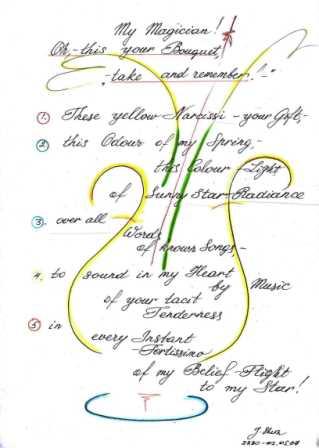 My Magician!
Oh,-this your Bouquet,
-take and remember!-"
1. These yellow Narcissi - your Gift,-
2. this Odour of my Spring,-
this Colour -Light
of Sunny Star-Radiance
3. over all
Words
of known Songs,-
4. to sound in my Heart
by Music
of your tacit
Tenderness
5. in
every Instant
-Fortissimo
of my Belief-Flight
to my Star!